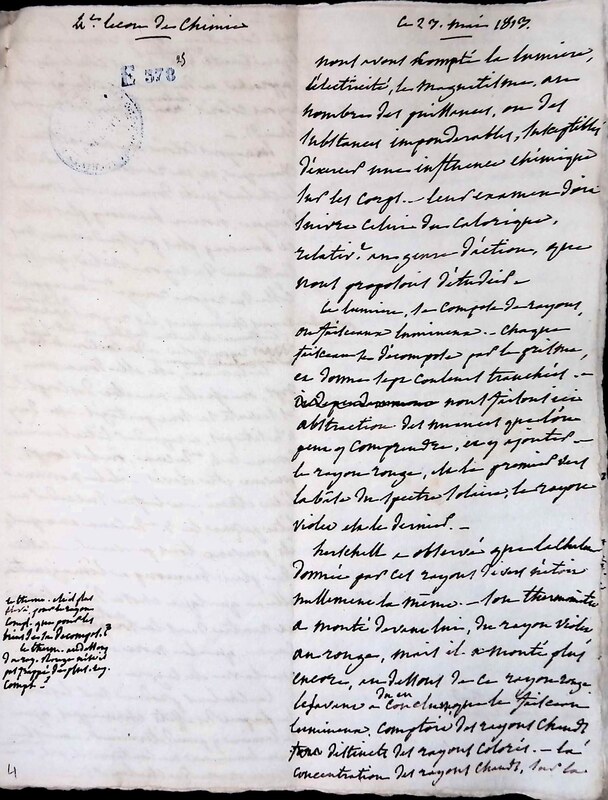 4.e leçon De Chimie
Ce 27. Mai 1813.
E 378
nous avons compté la lumiere,
l'électricité, le magnétisme, au
nombre des puissances, ou des
substances imponderables, susceptibles
d'exercer une influence chimique
sur les corps. - leur examen doit
suivre celui du calorique,
relativ.t au genre d'action, que
nous proposons d'étudier.
La lumiere, se compose de rayons,
ou faisceaux lumineux. - chaque
faisceau se décompose par le prisme,
et donne sept couleurs tranchées. -
nous faisons ici
abstraction des nuances que l'on
peut y comprendre, et y ajouter -
le rayon rouge, est le premier vers
la base du spectre solaire, le rayon
violet est le dernier. -
herschell a observé que la chaleur
donnée par ces rayons divers n'étoit
nullement la même. - son thermometre
a monté devant lui, du rayon violet
au rouge, mais il a monté plus
encore, au dessous de ce rayon rouge.
le savant a conclu, que le faisceau
lumineux, comptoit des rayons chauds
distincts des rayons colorés. - la
concentration des rayons chauds, sur la
le therm. est plus
élevé, pour le rayon
compl. que pour les
le therm. au dessous
du ray. rouge
pas frappé du plus. ray.
compl. -
4